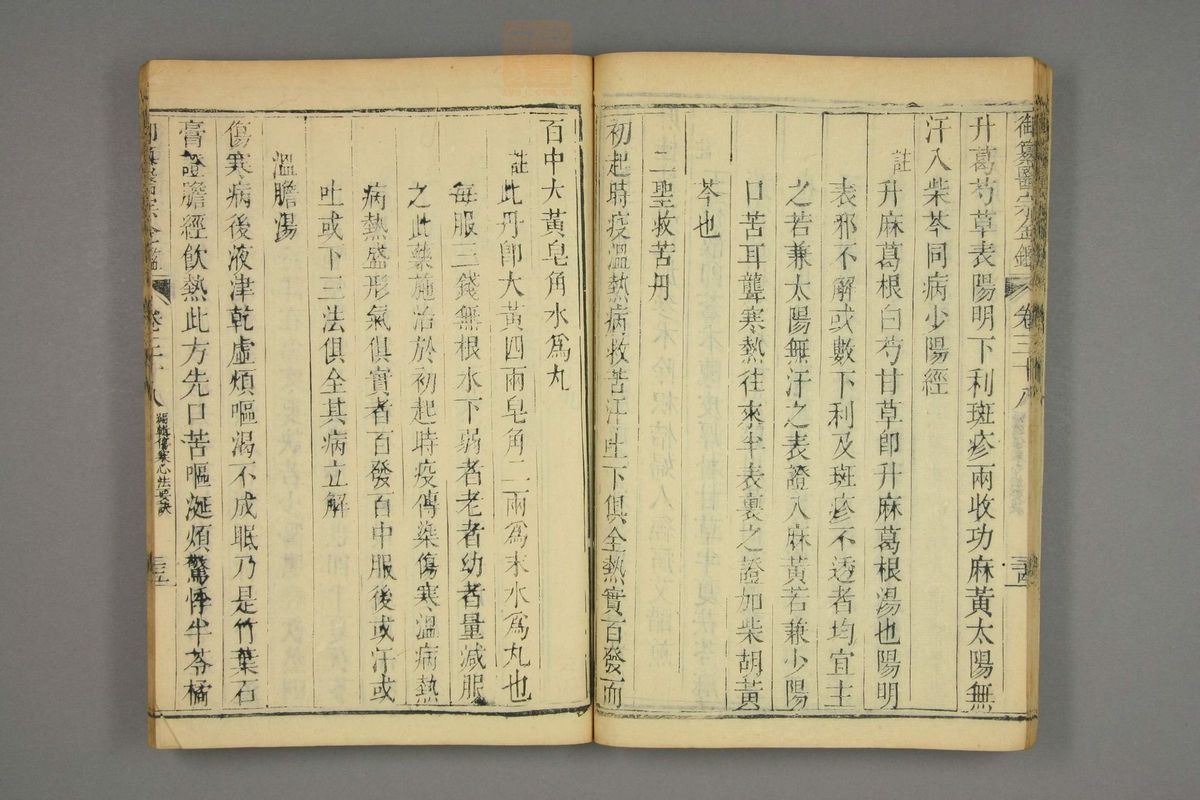 御纂醫宗金鑑 卷三十八
升葛芍草表陽明下利斑疹兩收功麻黃太陽無
汗入柴芩同病少陽經
註
升麻葛根白芍甘草卽升麻葛根湯也陽明
表邪不解或數下利及斑疹不透者均宜主
之若兼太陽無汗之表證入麻黃若兼少陽
口苦耳聾寒熱往來半表裏之證加柴胡黃
芩也
二聖救苦丹
初起時疫溫熱病救苦汗吐下俱全熱實百發而
百中大黃皂角水爲丸
註
此丹卽大黃四兩皂角二兩爲末水爲丸也
每服三錢無根水下弱者老者幼者量減服
之此藥施治於初起時疫傳染傷寒溫病熱
病熱盛形氣俱實者百發百中服後或汗或
吐或下三法俱全其病立解
溫膽湯
傷寒病後液津乾虛煩嘔渴不成眠乃是竹葉石
膏證膽經飲熱此方先口苦嘔涎煩驚悸半苓橘
醫宗金鑑 卷三十八 編輯傷寒心法要訣